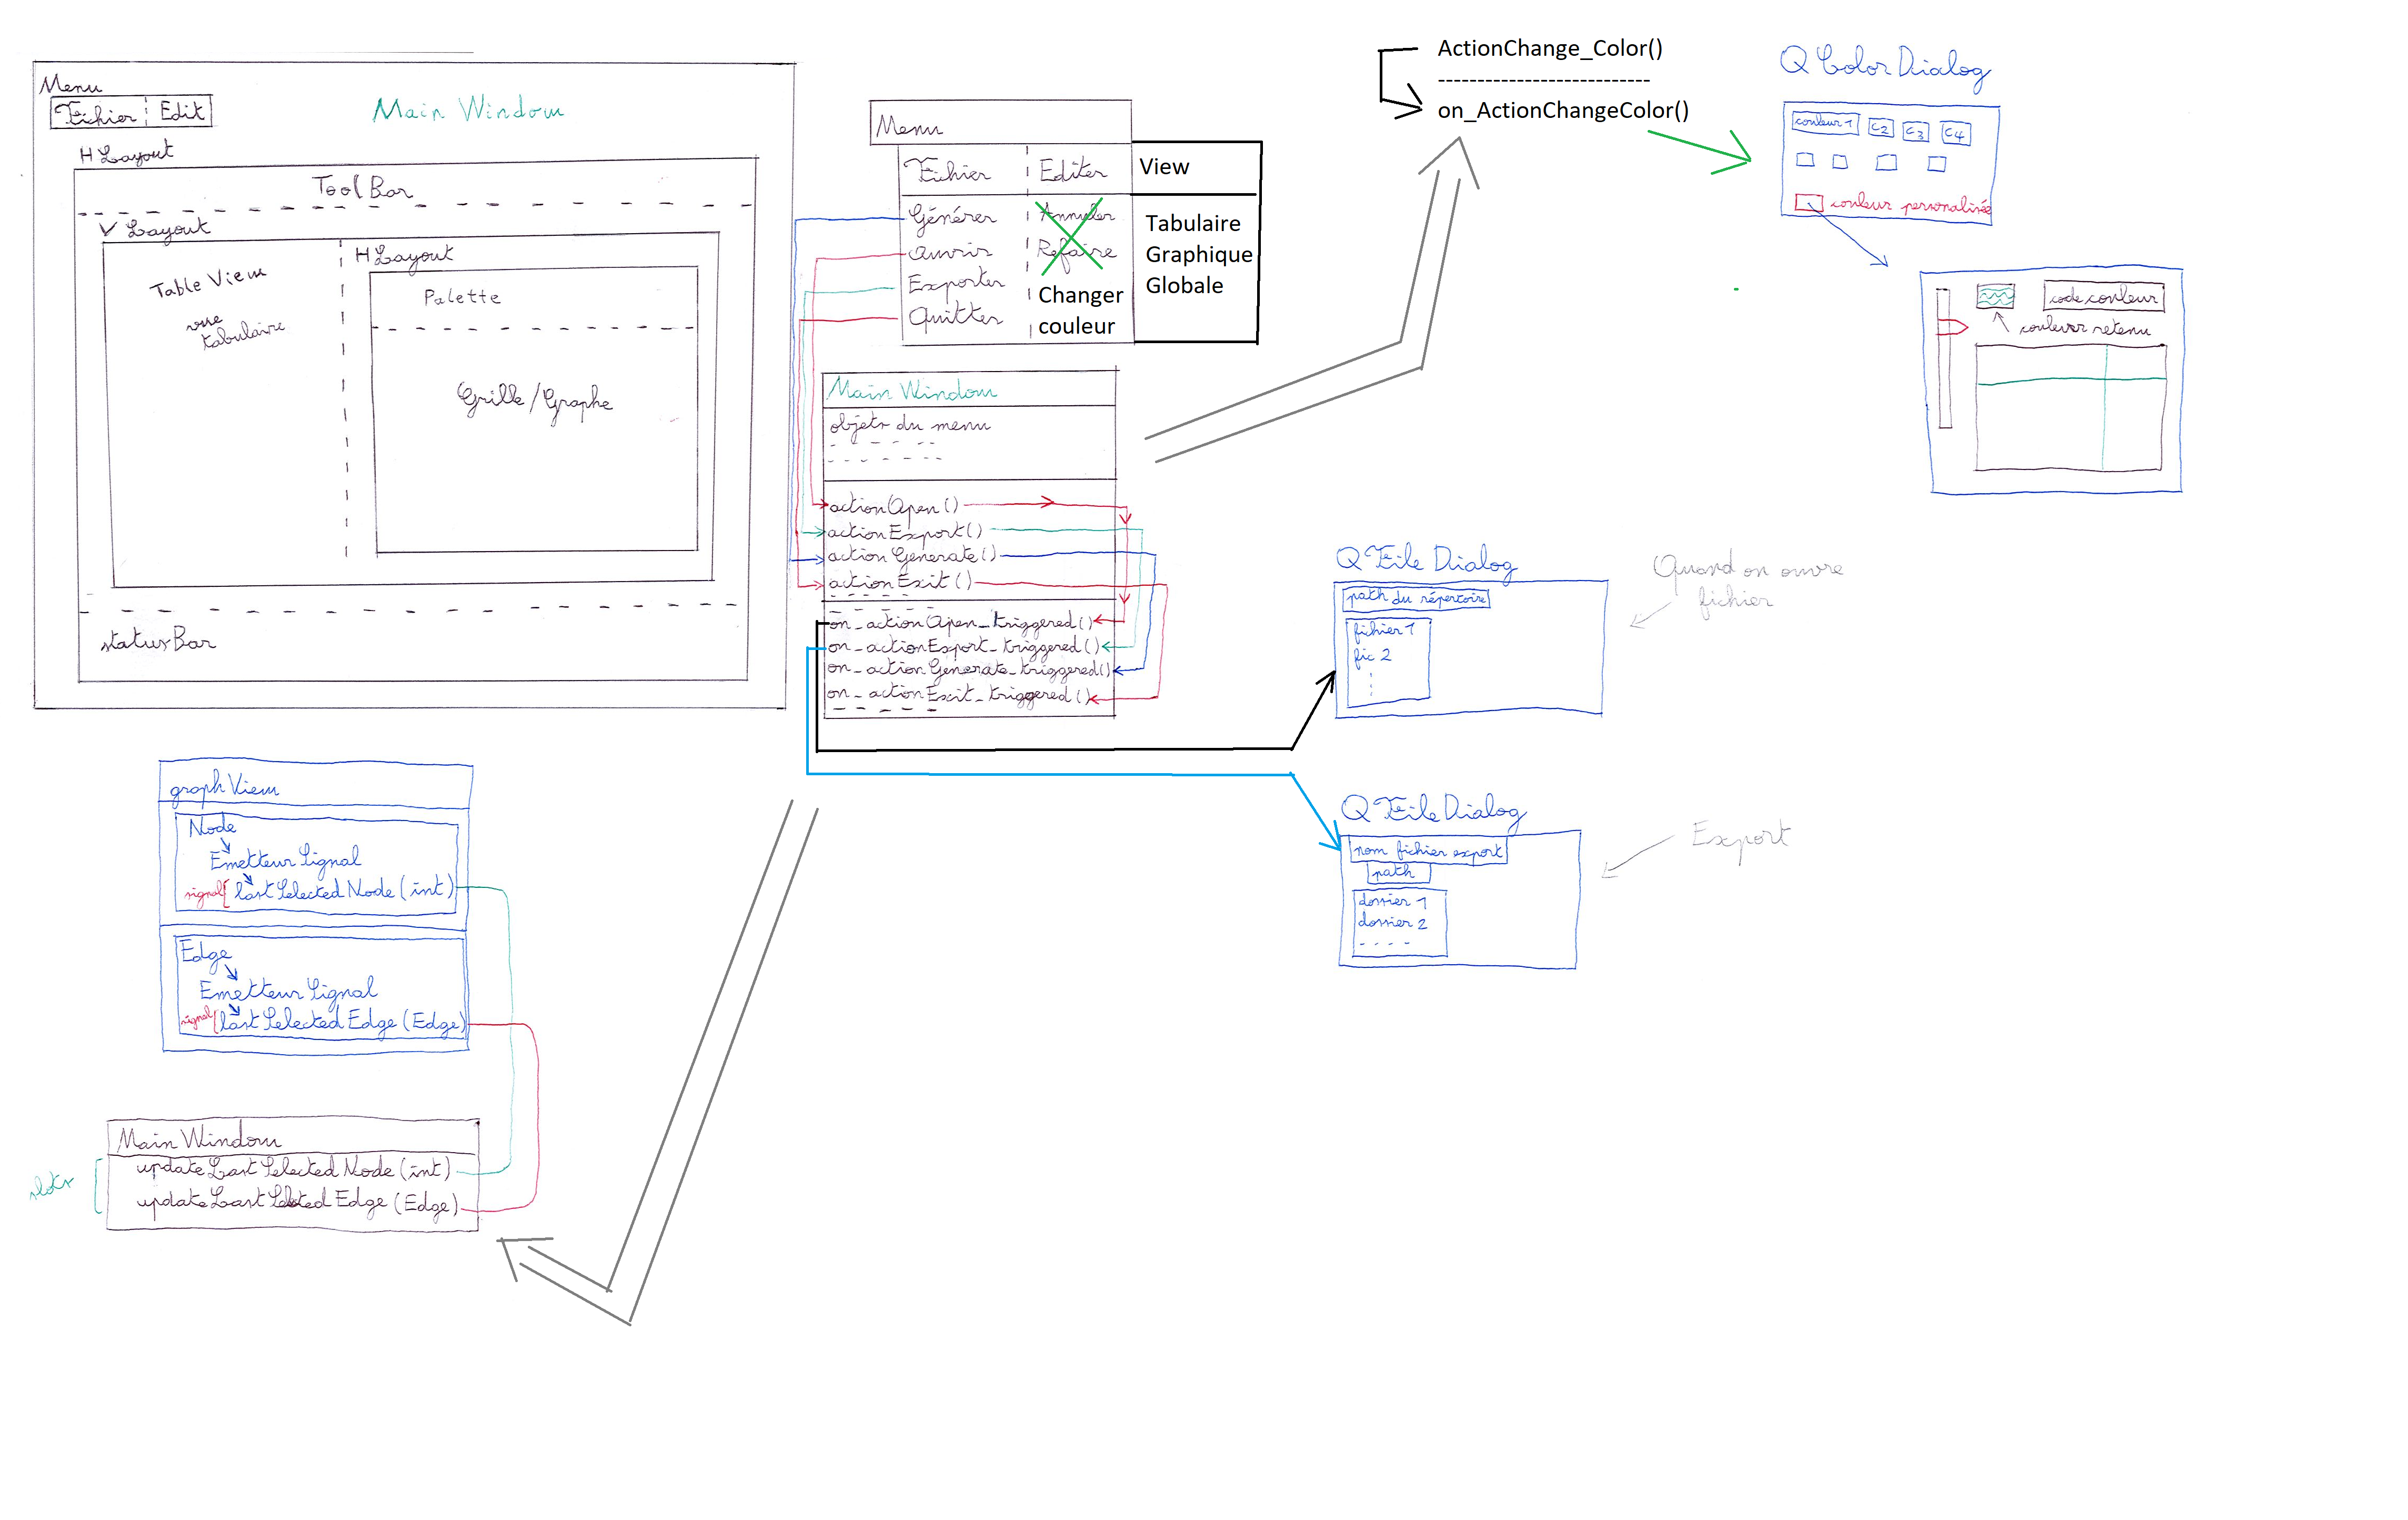 Menu
Fichier Edit
Main Window
H Layout
Tool Bar
V Layout
Table View
vue
tabulaire
H Layout
Palette
Grille/Graphe
statusBar
Menu
Fichier Editer View
Générer Annuler Tabulaire
Ouvrir Refaire Graphique
Exporter Changer Globale
Quitter couleur
Main Window
objets du menu
actionOpen()
actionExport()
actionGenerate()
actionExit()
on_actionOpen_triggered()
on_actionExport_triggered()
on_actionGenerate_triggered()
on_actionExit_triggered()
ActionChange_Color()
----------------------------
on_ActionChangeColor()
Q Color Dialog
couleur 1 C2 C3 C4
couleur personalisée
code couleur
couleur retenu
Q File Dialog
path du répertoire
fichier 1
fic 2
Quand on ouvre
fichier
Q File Dialog
nom fichier export
path
dossier 1
dossier 2
Export
graphView
Node
Emetteur Signal
signal last Selected Node (int)
Edge
Emetteur Signal
signal last Selected Edge (Edge)
Main Window
slots
update Last Selected Node (int)
update Last Selected Edge (Edge)